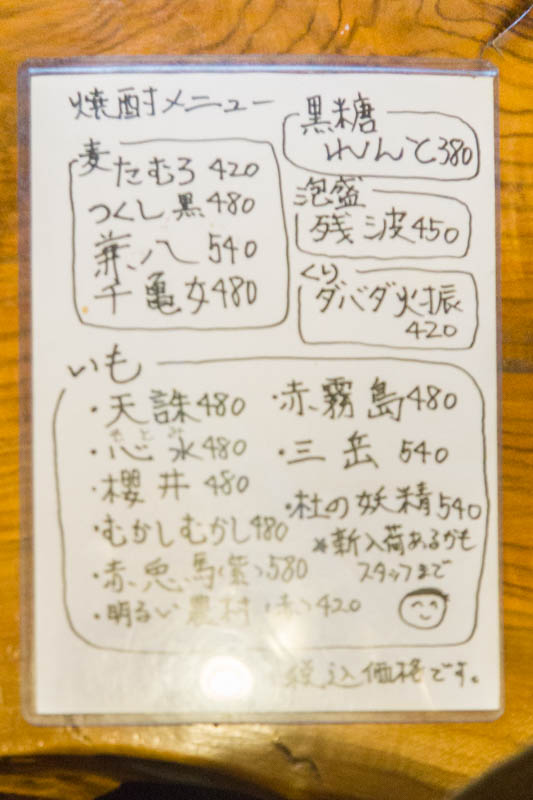 焼酎メニュー
麦
たむろ 420
つくし黒 480
兼八 540
千亀女 480
黒糖
れんと 380
泡盛
残波 450
くり
ダバダ火振
420
いも
・天誅 480
・心水 480
・櫻井 480
・むかしむかし 480
・赤兎馬(紫) 580
・明るい農村(赤) 420
・赤霧島 480
・三岳 540
・杜の妖精 540
*新入荷あるかも
スタッフまで
税込価格です。